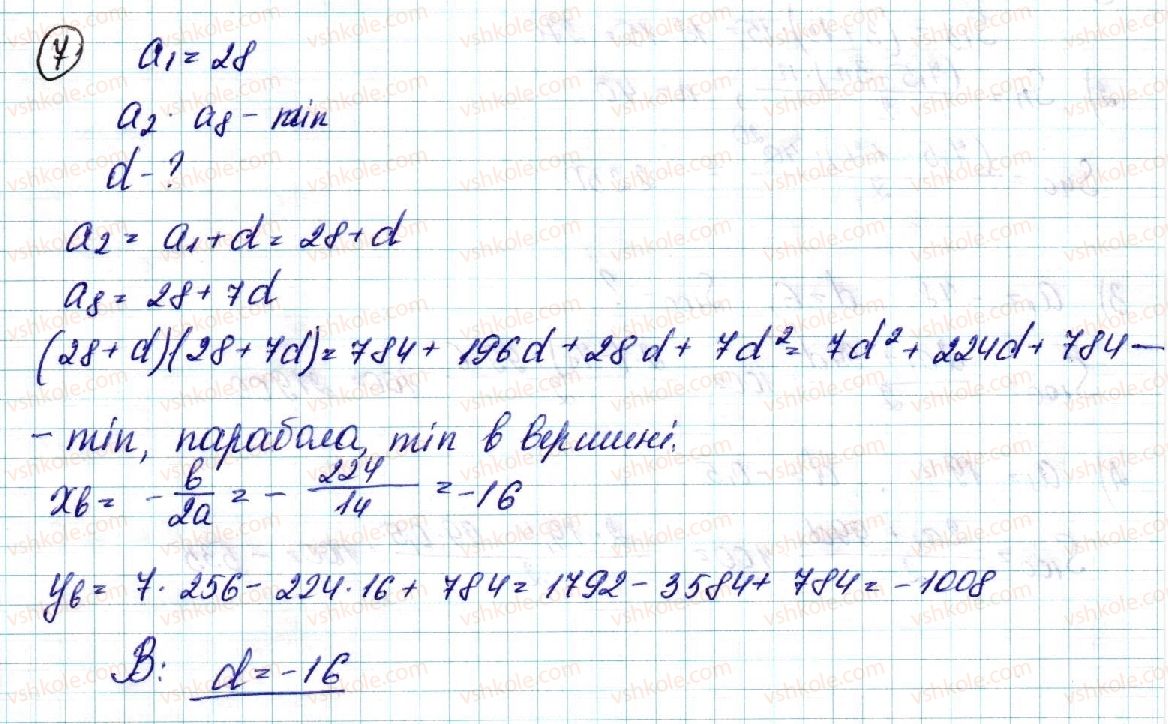 7) a₁ = 28
a₂ · a₈ - min
d - ?
a₂ = a₁ + d = 28 + d
a₈ = 28 + 7d
(28 + d)(28 + 7d) = 784 + 196d + 28d + 7d² = 7d² + 224d + 784 —
- min, парабола, min в вершині.
xв = - в/2a = - 224/14 = -16
yв = 7 · 256 - 224 · 16 + 784 = 1792 - 3584 + 784 = -1008
В: d = -16
vshkole.com